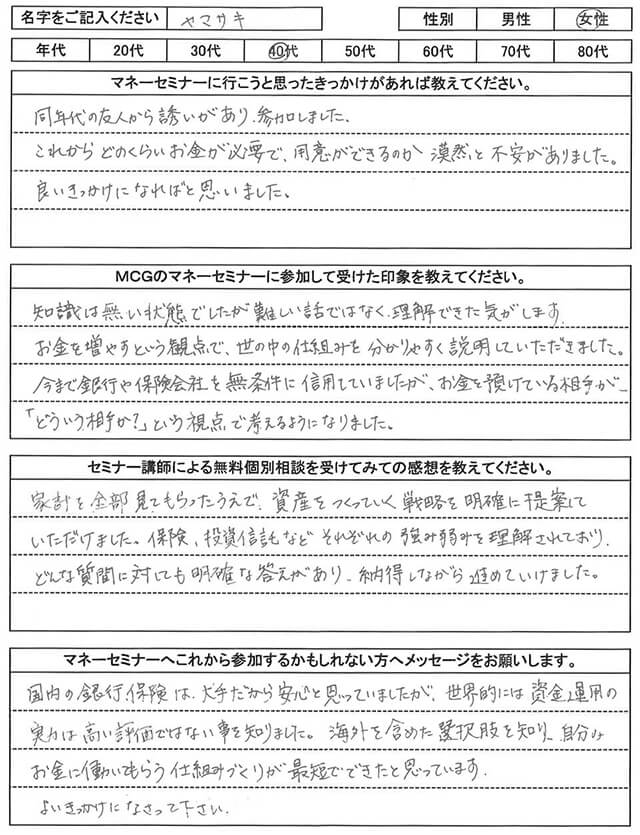 名字をご記入ください ヤマサキ 性別 男性 女性
年代 20代 30代 40代 50代 60代 70代 80代
マネーセミナーに行こうと思ったきっかけがあれば教えてください。
同年代の友人から誘いがあり、参加しました。
これからどのくらいお金が必要で、用意ができるのか漠然と不安がありました。
良いきっかけになればと思いました。
MCGのマネーセミナーに参加して受けた印象を教えてください。
知識は無い状態でしたが難しい話ではなく、理解できた気がします。
お金を増やすという観点で、世の中の仕組みを分かりやすく説明していただきました。
今まで銀行や保険会社を無条件に信用していましたが、お金を預けている相手が
「どういう相手か?」という視点で考えるようになりました。
セミナー講師による無料個別相談を受けてみての感想を教えてください。
家計を全部見てもらったうえで、資産をつくっていく戦略を明確に提案して
いただけました。保険、投資信託などそれぞれの強み弱みを理解されており、
どんな質問に対しても明確な答えがあり、納得しながら進めていけました。
マネーセミナーへこれから参加するかもしれない方へメッセージをお願いします。
国内の銀行保険は、大手だから安心と思っていましたが、世界的には資金運用の
実力は高い評価ではない事を知りました。海外を含めた選択肢を知り、自分の
お金に働いてもらう仕組みづくりが最短でできたと思っています。
よいきっかけになさって下さい。